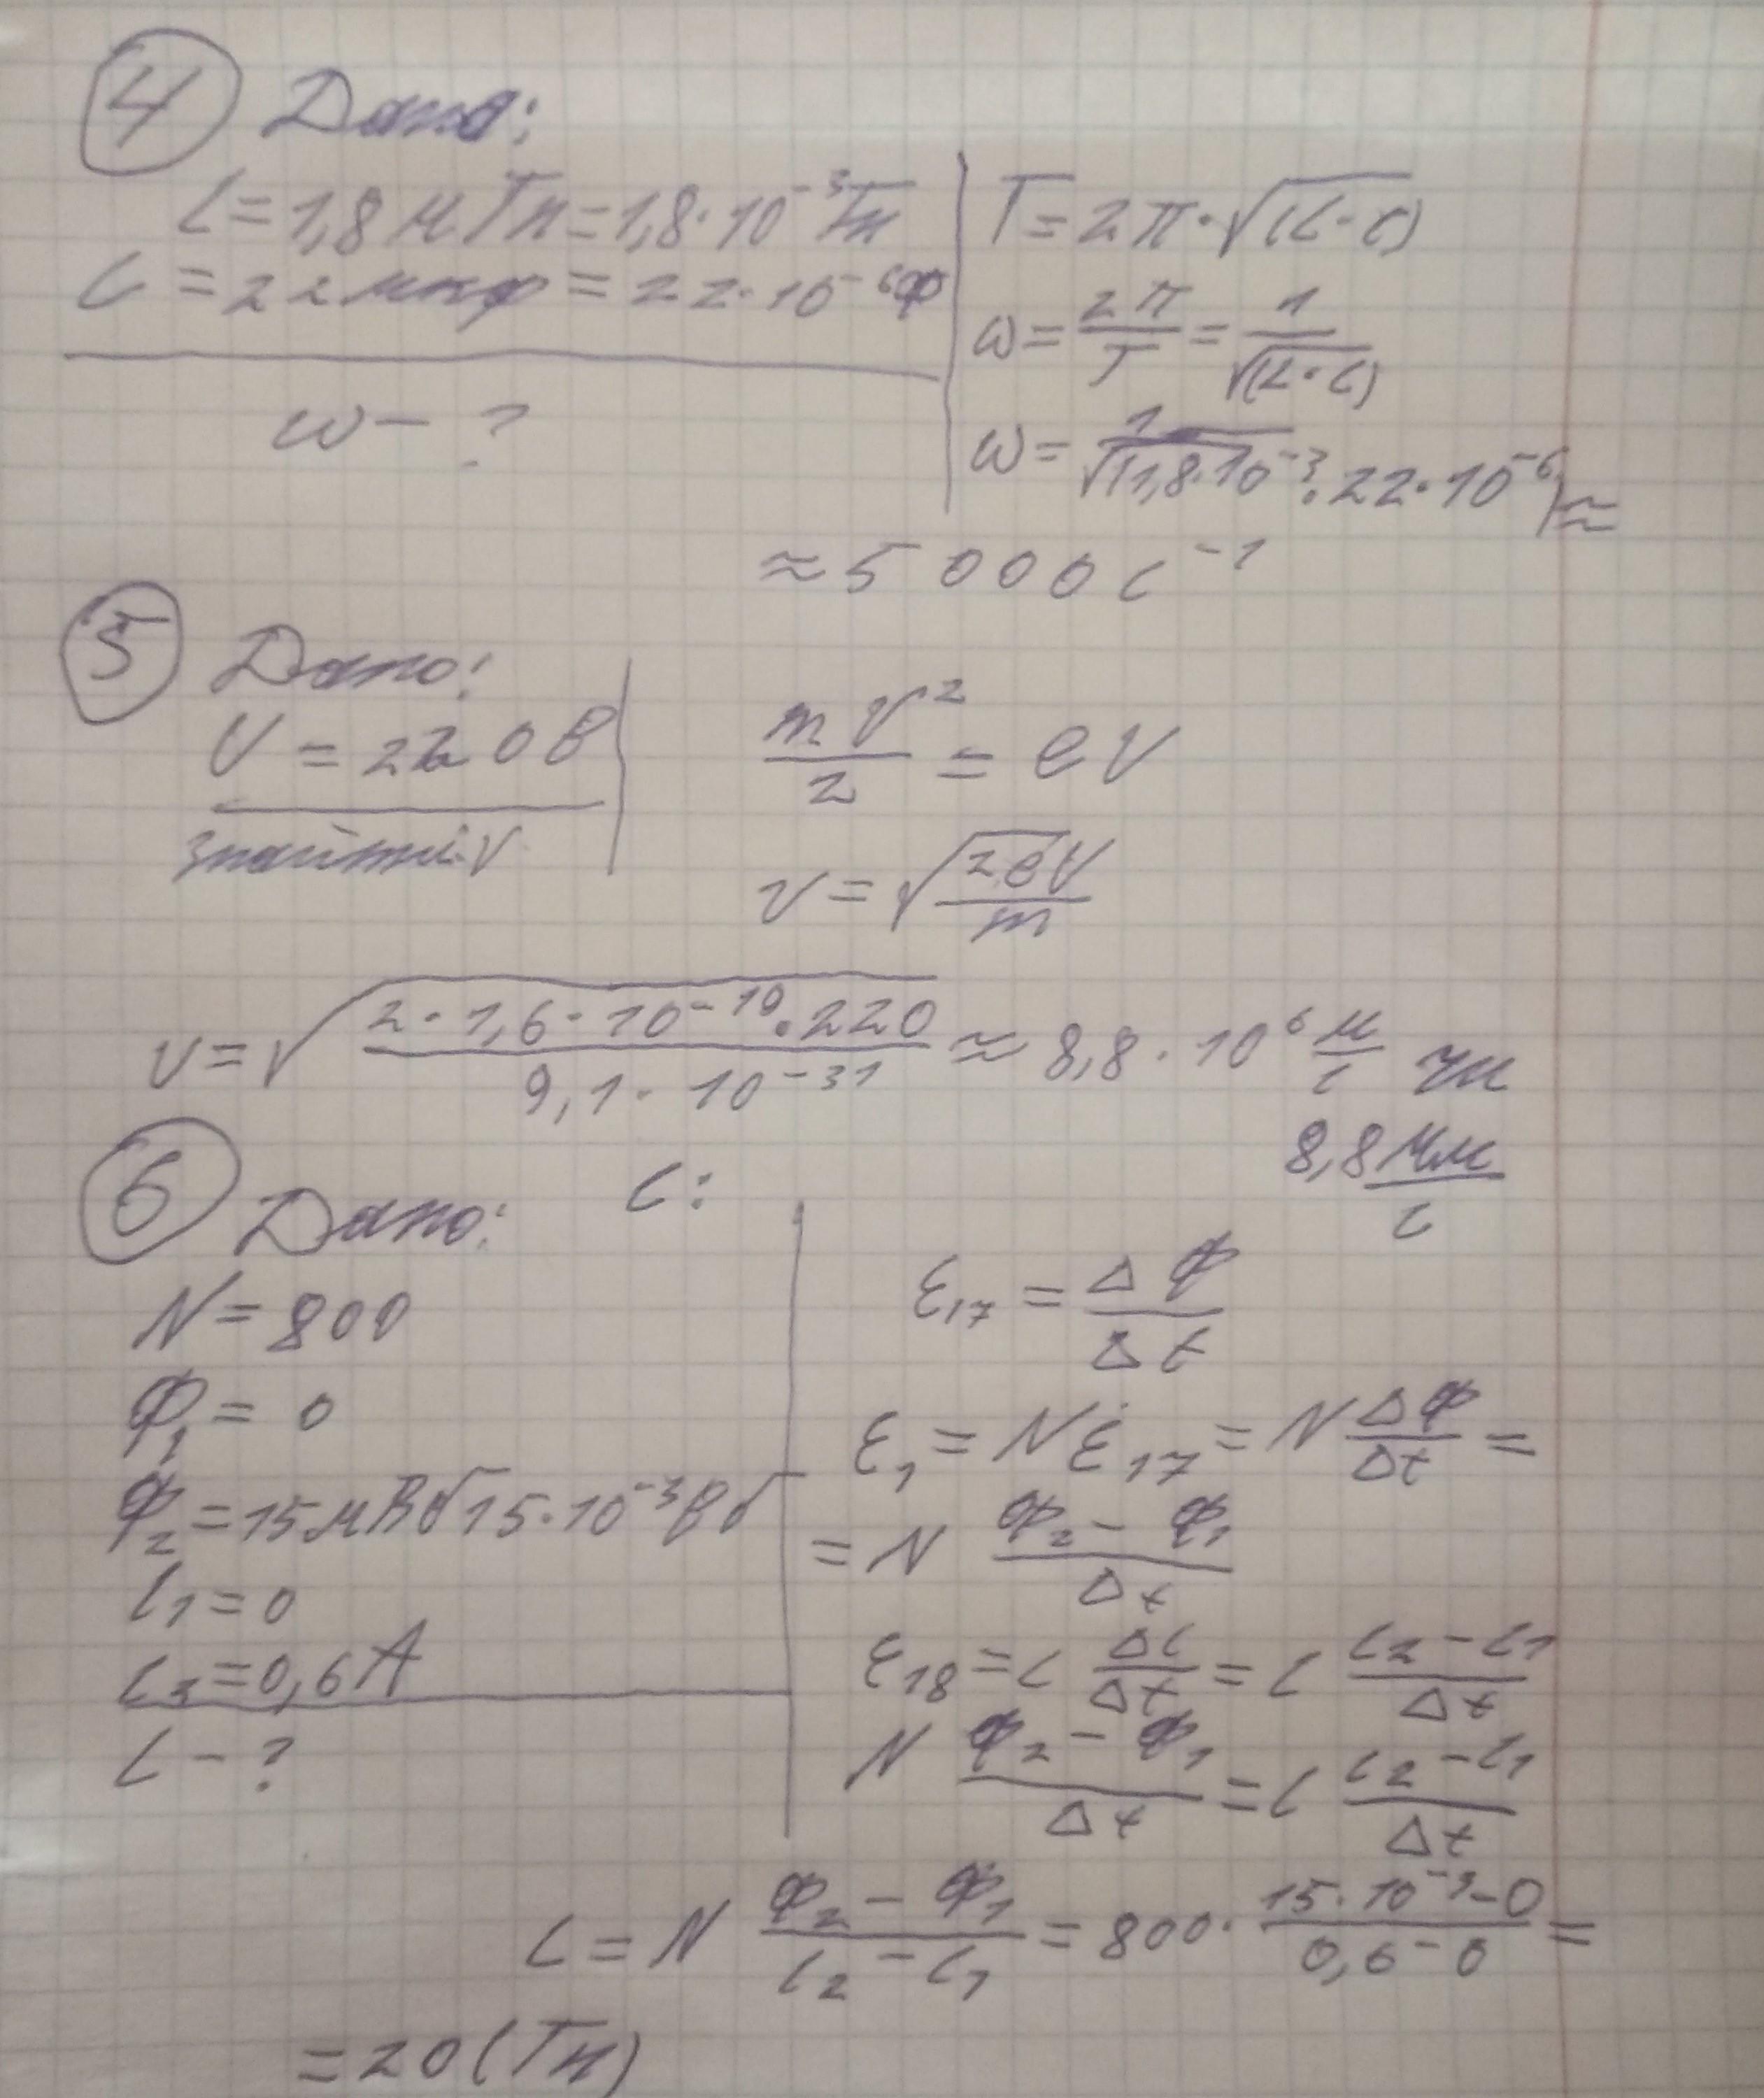 4 Дано:
L = 1,8 мГн = 1,8 · 10⁻³ Гн
C = 22 мкф = 22 · 10⁻⁶ Ф
ω - ?
T = 2π · √(L · C)
ω = 2π/T = 1/√(L · C)
ω = 1/√(1,8 · 10⁻³ · 22 · 10⁻⁶) ≈
≈ 5 000 с⁻¹
5 Дано:
U = 220 В
знайти: V
mv²/2 = eU
v = √(2eU/m)
v = √(2 · 1,6 · 10⁻¹⁰ · 220 / 9,1 · 10⁻³¹) ≈ 8,8 · 10⁶ м/с чи
8,8 Мм/с
6 Дано: С:
N = 800
Ф₁ = 0
Ф₂ = 15 мВб 15 · 10⁻³ Вб
i₁ = 0
i₂ = 0,6 А
L - ?
ε₁₇ = ΔФ/Δt
ε₁ = Nε₁₇ = N ΔФ/Δt =
= N (Ф₂ - Ф₁)/Δt
ε₁₈ = L Δi/Δt = L (i₂ - i₁)/Δt
N (Ф₂ - Ф₁)/Δt = L (i₂ - i₁)/Δt
L = N (Ф₂ - Ф₁)/(i₂ - i₁) = 800 · (15 · 10⁻³ - 0)/(0,6 - 0) =
= 20 (Гн)